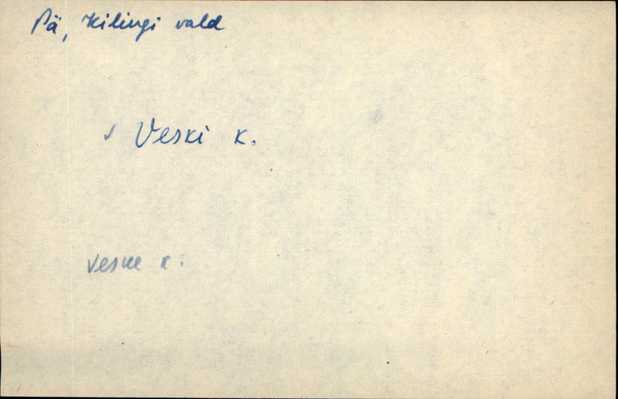 Pä, Kilingi vald
✓ Veski k.
Veske k.